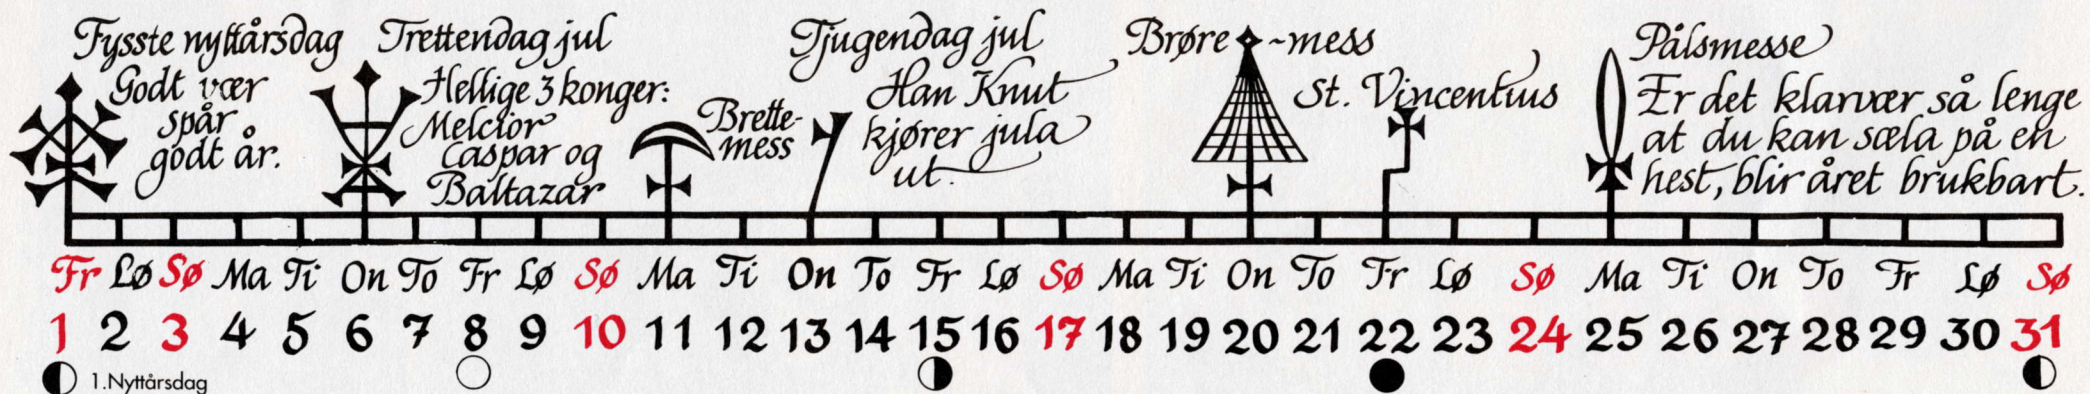 Fysste nyttårsdag
Godt vær
spår
godt år.
Trettendag jul
Hellige 3 konger:
Melcior
Caspar og
Baltazar
Brette-
mess
Tjugendag jul
Han Knut
kjører jula
ut.
Brøre-mess
St. Vincentius
Pålsmesse
Er det klarvær så lenge
at du kan sæla på en
hest, blir året brukbart.
Fr Lø Sø Ma Ti On To Fr Lø Sø Ma Ti On To Fr Lø Sø Ma Ti On To Fr Lø Sø Ma Ti On To Fr Lø Sø
1 2 3 4 5 6 7 8 9 10 11 12 13 14 15 16 17 18 19 20 21 22 23 24 25 26 27 28 29 30 31
1.Nyttårsdag